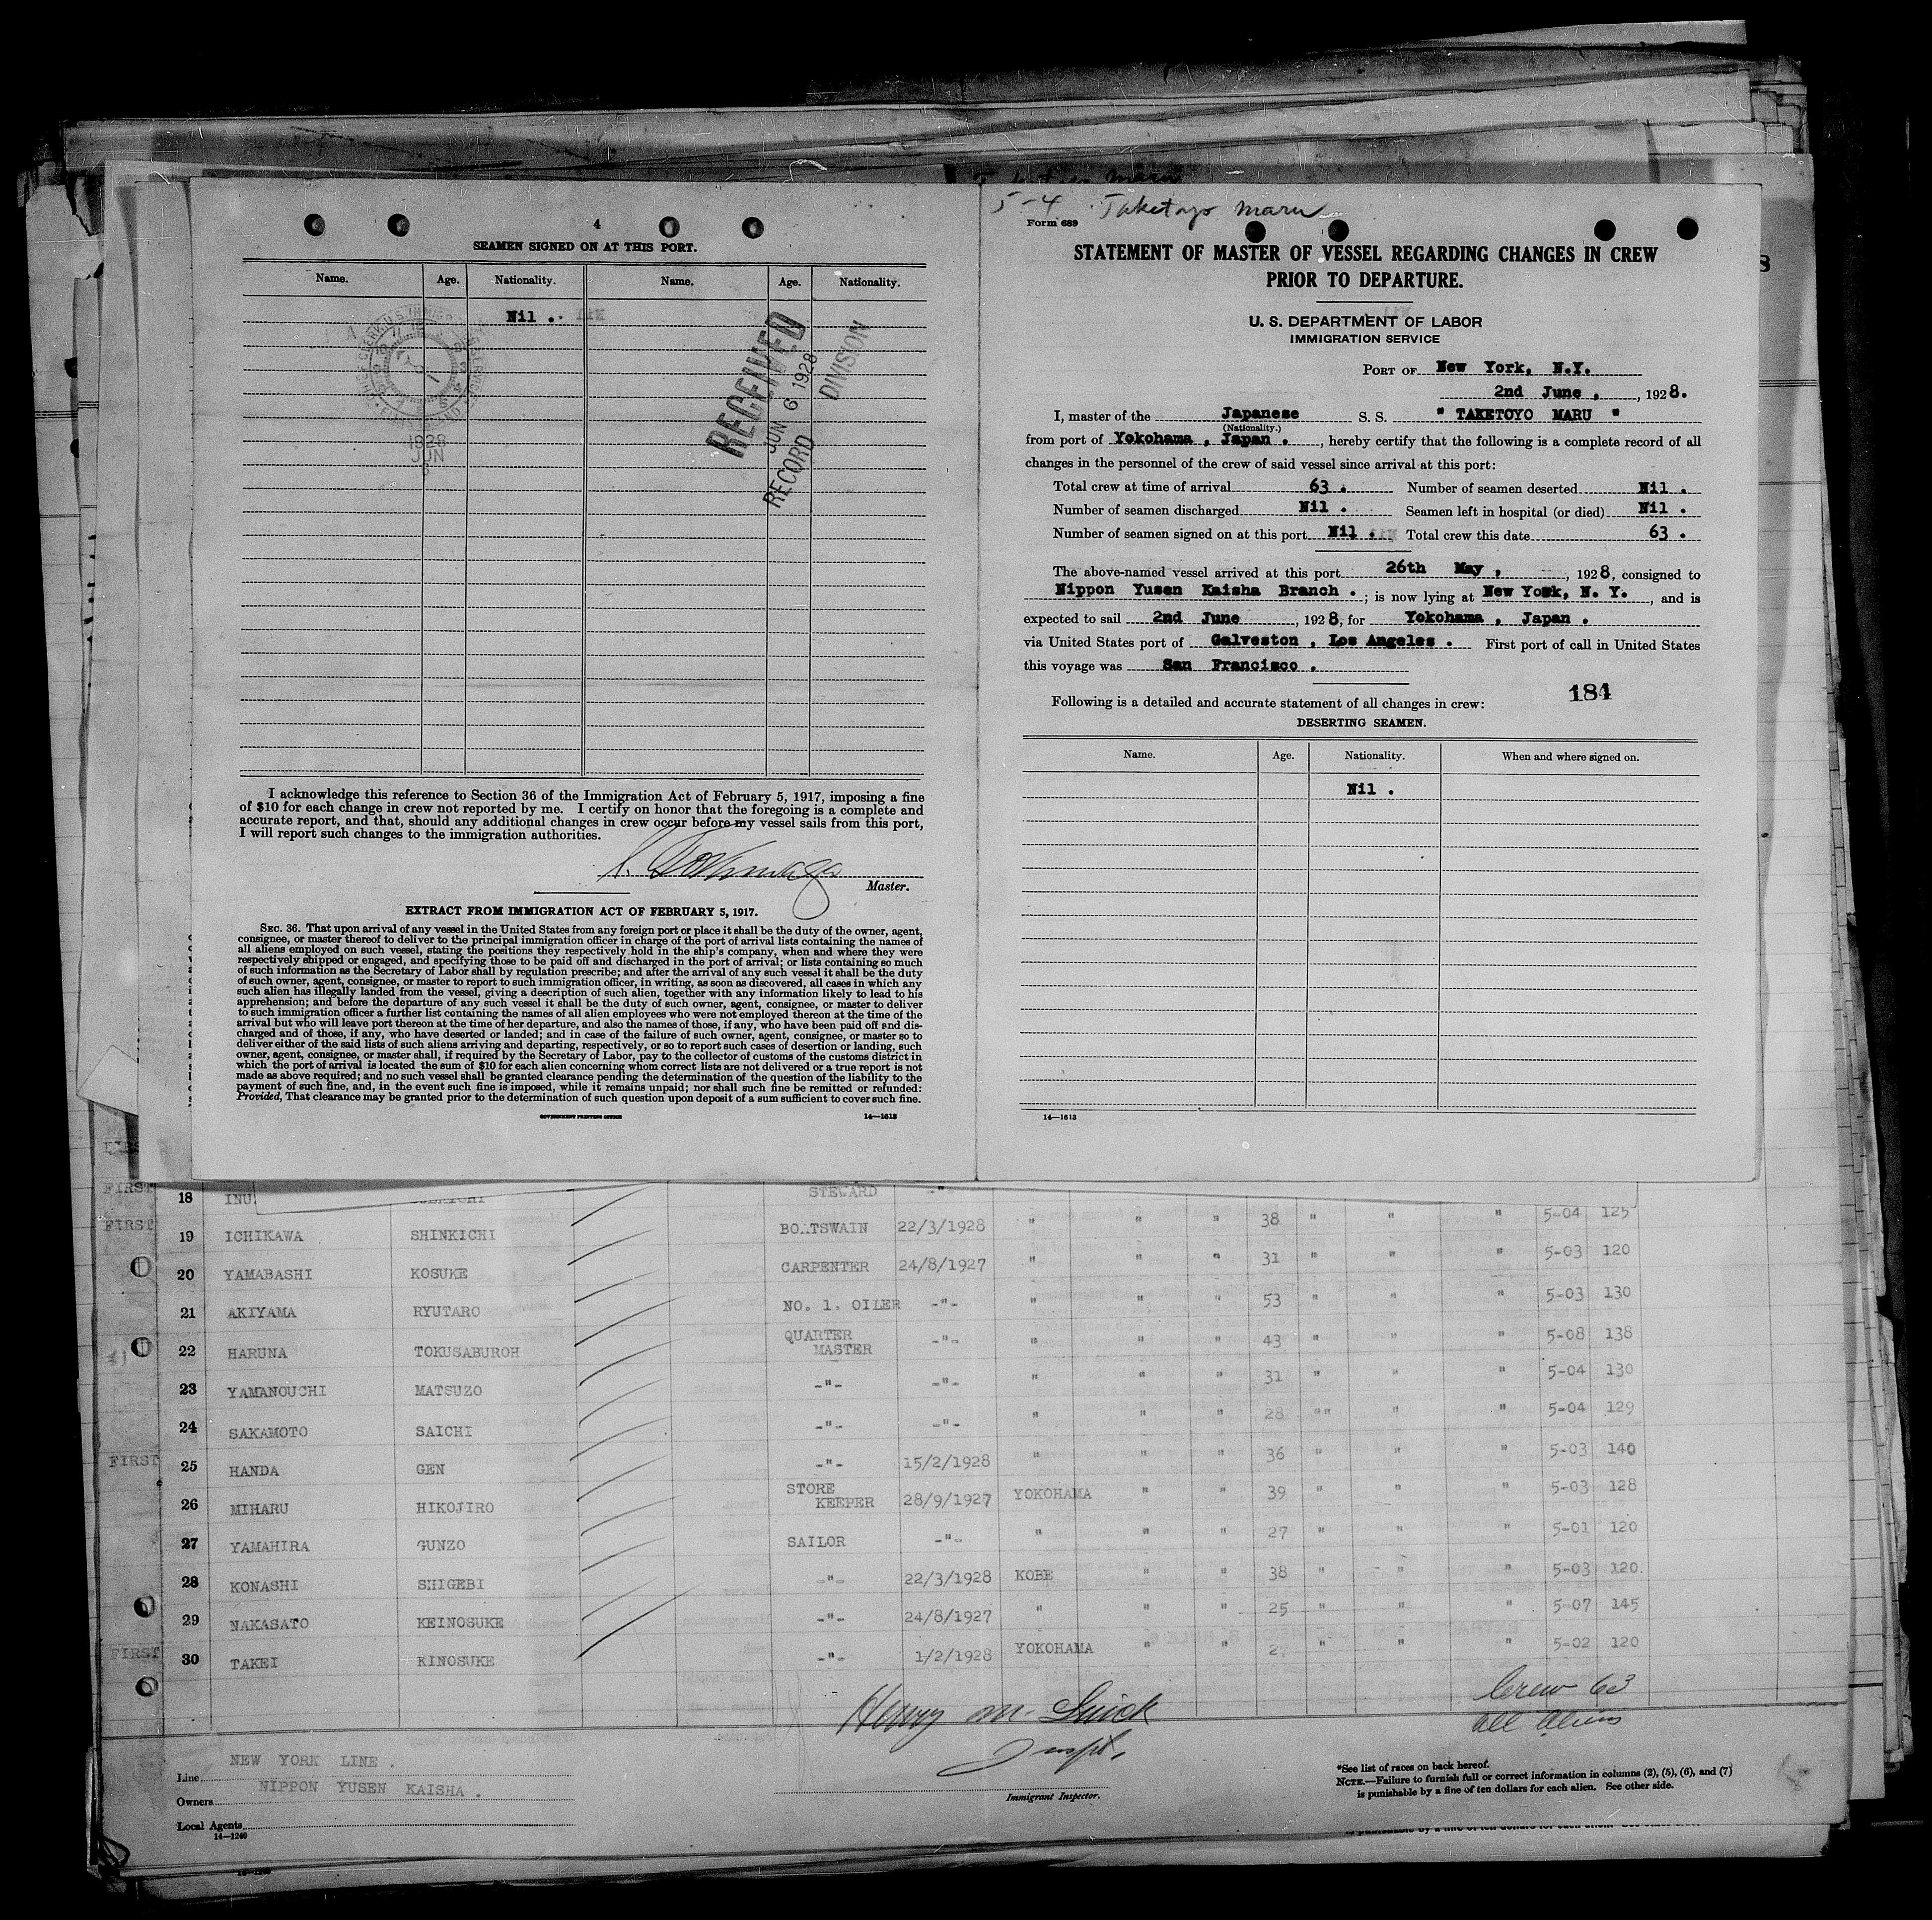 4
SEAMEN SIGNED ON AT THIS PORT.
Name. Age. Nationality. Name. Age. Nationality.
Nil .
1928
JUN
6
RECEIVED
JUN 6 1928
RECORD DIVISION
I acknowledge this reference to Section 36 of the Immigration Act of February 5, 1917, imposing a fine
of $10 for each change in crew not reported by me. I certify on honor that the foregoing is a complete and
accurate report, and that, should any additional changes in crew occur before my vessel sails from this port,
I will report such changes to the immigration authorities.
Master.
EXTRACT FROM IMMIGRATION ACT OF FEBRUARY 5, 1917.
SEC. 36. That upon arrival of any vessel in the United States from any foreign port or place it shall be the duty of the owner, agent,
consignee, or master thereof to deliver to the principal immigration officer in charge of the port of arrival lists containing the names of
all aliens employed on such vessel, stating the positions they respectively hold in the ship's company, when and where they were
respectively shipped or engaged, and specifying those to be paid off and discharged in the port of arrival; or lists containing so much
of such information as the Secretary of Labor shall by regulation prescribe; and after the arrival of any such vessel it shall be the duty
of such owner, agent, consignee, or master to report to such immigration officer, in writing, as soon as discovered, all cases in which any
such alien has illegally landed from the vessel, giving a description of such alien, together with any information likely to lead to his
apprehension; and before the departure of any such vessel it shall be the duty of such owner, agent, consignee, or master to deliver
to such immigration officer a further list containing the names of all alien employees who were not employed thereon at the time of the
arrival but who will leave port thereon at the time of her departure, and also the names of those, if any, who have been paid off and dis-
charged and of those, if any, who have deserted or landed; and in case of the failure of such owner, agent, consignee, or master so to
deliver either of the said lists of such aliens arriving and departing, respectively, or so to report such cases of desertion or landing, such
owner, agent, consignee, or master shall, if required by the Secretary of Labor, pay to the collector of customs of the customs district in
which the port of arrival is located the sum of $10 for each alien concerning whom correct lists are not delivered or a true report is not
made as above required; and no such vessel shall be granted clearance pending the determination of the question of the liability to the
payment of such fine, and, in the event such fine is imposed, while it remains unpaid; nor shall such fine be remitted or refunded:
Provided, That clearance may be granted prior to the determination of such question upon deposit of a sum sufficient to cover such fine.
GOVERNMENT PRINTING OFFICE 14—1613
5-4 Taketoyo Maru
Form 689
STATEMENT OF MASTER OF VESSEL REGARDING CHANGES IN CREW
PRIOR TO DEPARTURE.
U. S. DEPARTMENT OF LABOR
IMMIGRATION SERVICE
PORT OF New York, N.Y.
2nd June , , 1928.
I, master of the Japanese S. S. " TAKETOYO MARU "
(Nationality.)
from port of Yokohama , Japan . , hereby certify that the following is a complete record of all
changes in the personnel of the crew of said vessel since arrival at this port:
Total crew at time of arrival 63 . Number of seamen deserted Nil .
Number of seamen discharged Nil . Seamen left in hospital (or died) Nil .
Number of seamen signed on at this port Nil . Total crew this date 63 .
The above-named vessel arrived at this port 26th May , , 1928, consigned to
Nippon Yusen Kaisha Branch . ; is now lying at New York, N. Y. , and is
expected to sail 2nd June , 1928, for Yokohama , Japan .
via United States port of Galveston , Los Angeles . First port of call in United States
this voyage was San Francisco .
184
Following is a detailed and accurate statement of all changes in crew:
DESERTING SEAMEN.
Name. Age. Nationality. When and where signed on.
Nil .
14—1613
FIRST 18 INU STEWARD -"-
FIRST 19 ICHIKAWA SHINKICHI BOATSWAIN 22/3/1928 " " " 38 " " " 5-04 125
20 YAMABASHI KOSUKE CARPENTER 24/8/1927 " " " 31 " " " 5-03 120
21 AKIYAMA RYUTARO NO. 1. OILER -"- " " " 53 " " " 5-03 130
22 HARUNA TOKUSABUROH QUARTER MASTER -"- " " " 43 " " " 5-08 138
23 YAMANOUCHI MATSUZO -"- -"- " " " 31 " " " 5-04 130
24 SAKAMOTO SAICHI -"- -"- " " " 28 "" " " 5-04 129
FIRST 25 HANDA GEN -"- 15/2/1928 " " " 36 " " " 5-03 140
26 MIHARU HIKOJIRO STORE KEEPER 28/9/1927 YOKOHAMA " " 39 " " " 5-03 128
27 YAMAHIRA GUNZO SAILOR -"- " " " 27 " " " 5-01 120
28 KONASHI SHIGEBI -"- 22/3/1928 KOBE " " 38 " " " 5-03 120.
29 NAKASATO KEINOSUKE -"- 24/8/1927 " " " 25 " " " 5-07 145
FIRST 30 TAKEI KINOSUKE -"- 1/2/1928 YOKOHAMA " " " " " 5-02 120
Crew 63
all aliens
Inspt.
Immigrant Inspector.
Line NEW YORK LINE .
Owners NIPPON YUSEN KAISHA .
Local Agents
14—1240
*See list of races on back hereof.
NOTE.—Failure to furnish full or correct information in columns (2), (5), (6), and (7)
is punishable by a fine of ten dollars for each alien. See other side.